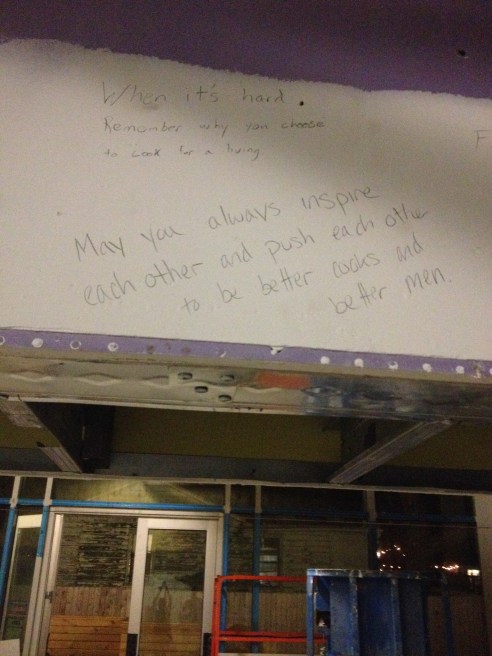 When it's hard.
Remember why you choose
to cook for a living
F
May you always inspire
each other and push each other
to be better cooks and
better men.